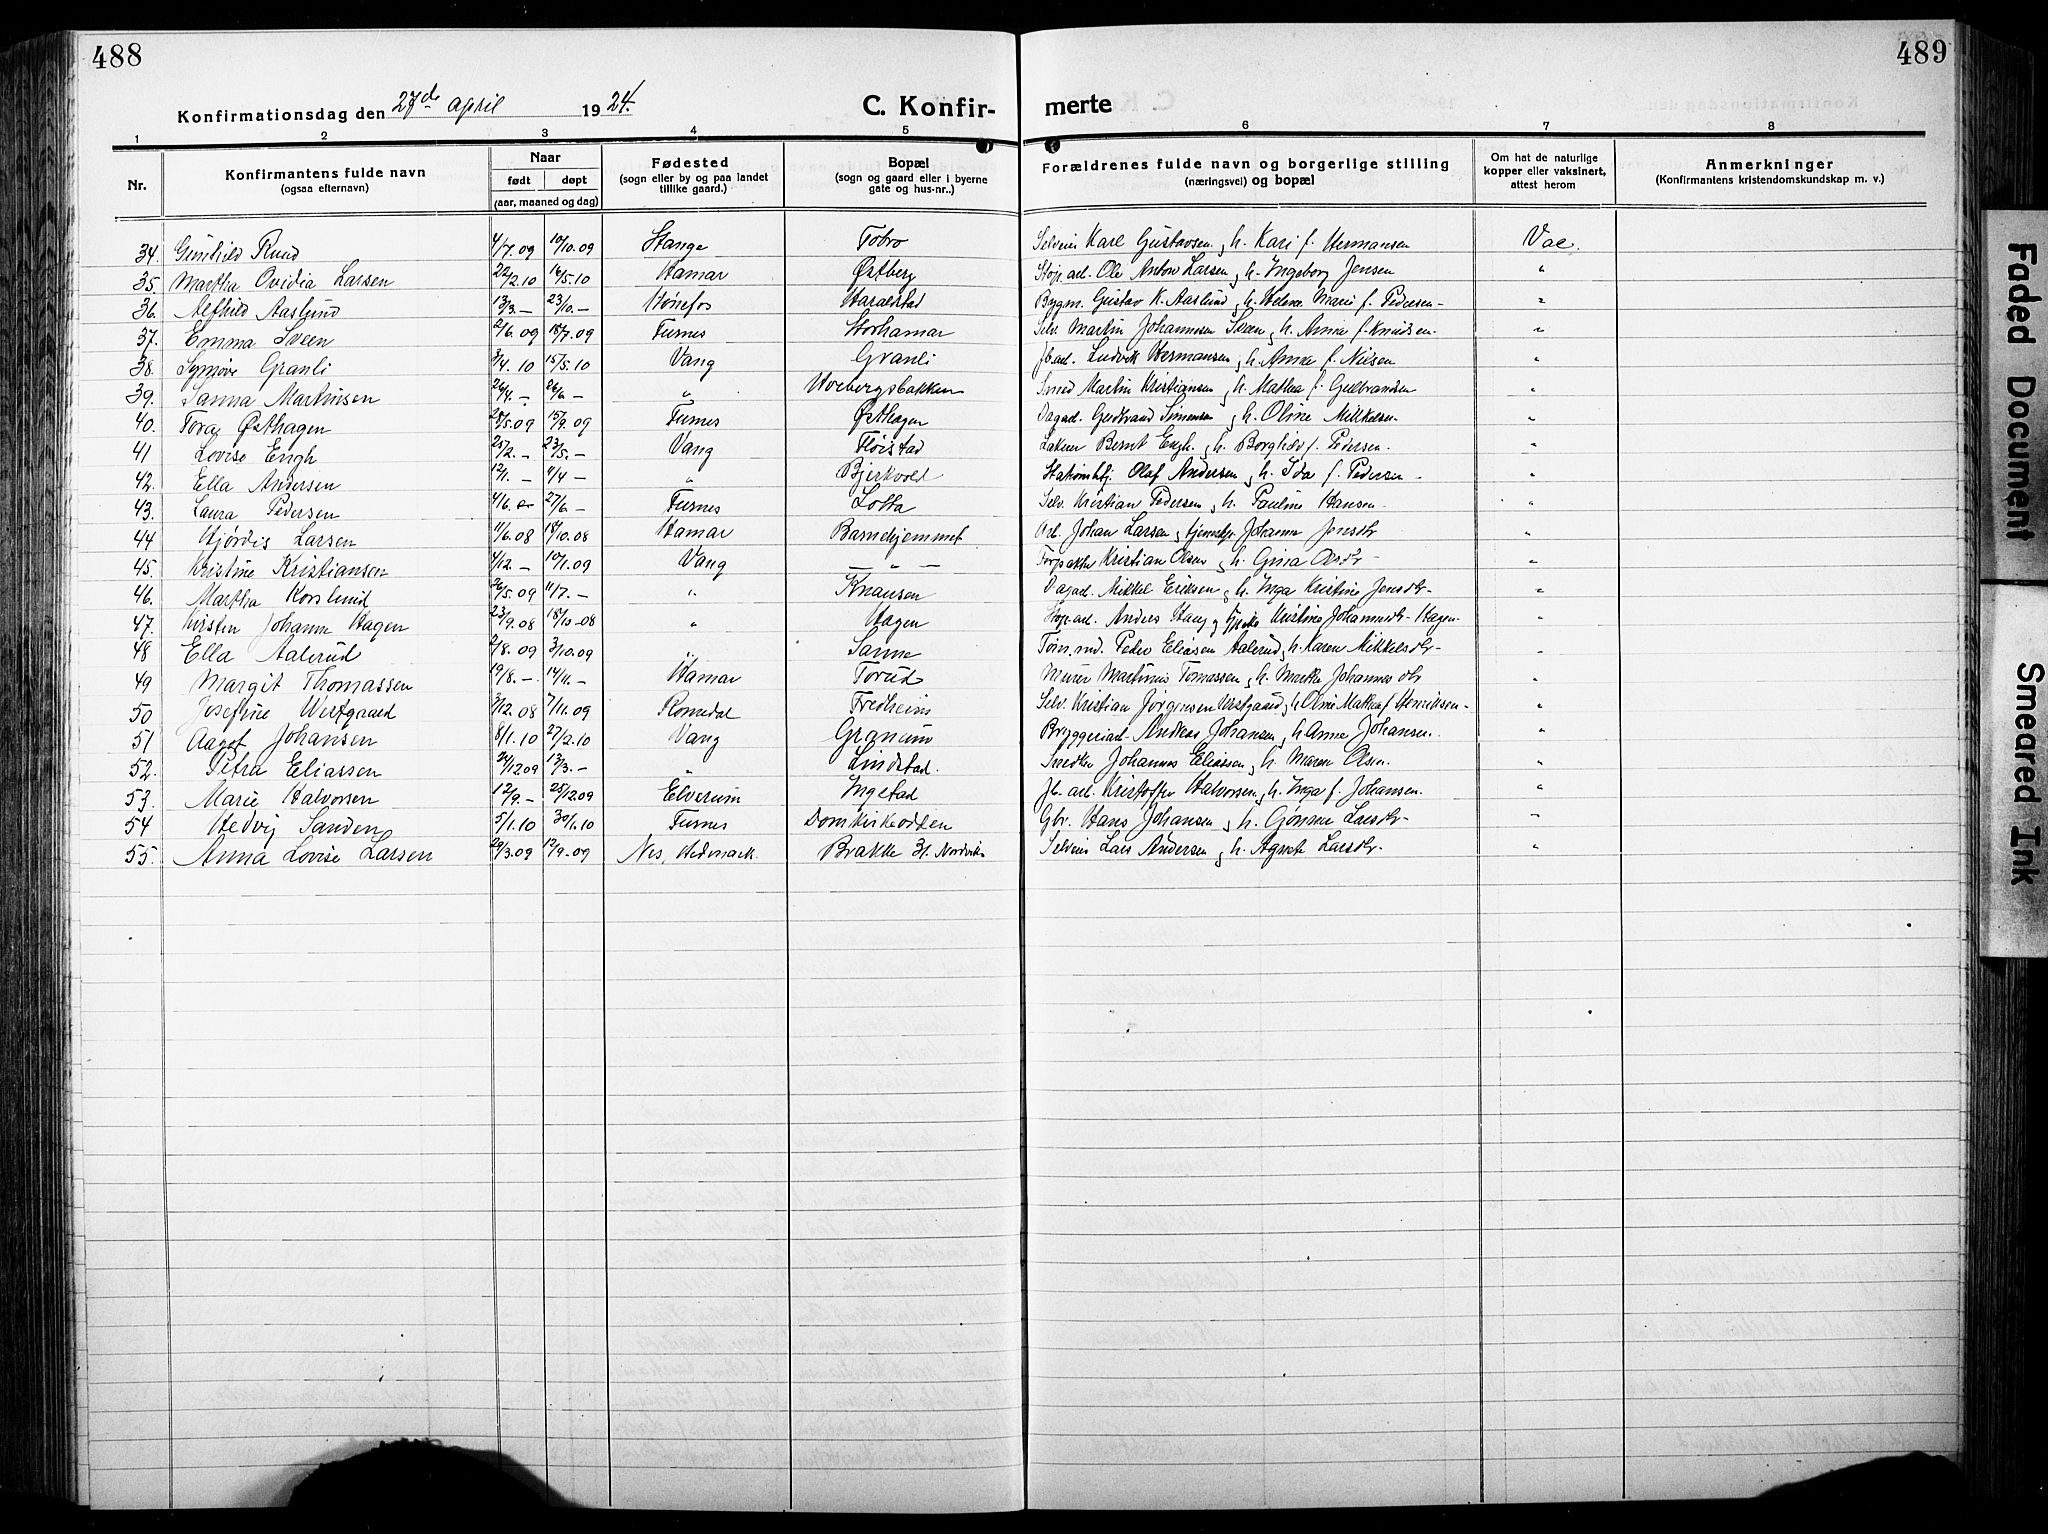 488
489
Konfirmationsdag den 27de april 1924. C. Konfir-
merte
1 2 3 4 5 6 7 8
Nr. Konfirmantens fulde navn (ogsaa efternavn) Naar født døpt (aar, maaned og dag) Fødested (sogn eller by og paa landet tillike gaard.) Bopæl (sogn og gaard eller i byerne gate og hus-nr..) Forældrenes fulde navn og borgerlige stilling (næringsvei) og bopæl Om hat de naturlige kopper eller vaksinert, attest herom Anmerkninger (Konfirmantens kristendomskundskap m. v.)
34. Gunhild Ruud 4/7.09 10/10.09 Stange Tobro Karl Gustavsen og h. Kari f. Hermansen Vac.
35. Martha Ovidia Larsen 22/2.10 16/5.10 Hamar Østberg Ole Anton Larsen og h. Ingeborg Jensen "
36. Alfhild Aaslund 13/3.– 23/10.– Hønefos Haralstad Bygm. Gustav K. Aaslund og h. Helene Marie f. Pedersen– "
37. Emma Sveen 2/6.09 18/7.09 Furnes Storhamar Selv. Martin Johannesen Sveen og h. Anna f. Knudsen. "
38. Synnøve Granli 3/4.10 15/5.10 Vang Granli Jb.ad. Ludvik Hermansen og h. Anna f. Nilsen "
39. Sanna Martinsen 26/4.– 26/6– " Hoebergsbakken Smed Martin Kristiansen og h. Mathea f. Gulbrandsen "
40. Tora Østhagen 28/5.09 15/9.09 Furnes Østhagen Dagad. Gudbrand Simensen og h. Oline Mikkelsen "
41 Lovise Engh 25/2.– 23/5.– Vang Fløistad Bernt Engh. og h. Borghild f. Pedersen. "
42. Ella Andersen 12/1.– 4/4– " Bjerkvold Stationsbtj. Olaf Andersen og h. Ida f. Pedersen – "
43. Laura Pedersen 4/6. 27/6.– Furnes Lotta Selv. Kristian Pedersen og h. Pauline Hansen "
44 Hjørdis Larsen 11/6.08 18/10.08 Hamar Barnehjemmet Arb. Johan Larsen og Johanne Jensdtr "
45. Kristine Kristiansen 4/12.– 10/1.09 Vang – " – Forpakter Kristian Olsen og h. Gina Olsdtr – "
46. Martha Korslund 26/5.09 11/7.– " Knausen Dagad. Mikkel Eriksen og h. Inga Kristine Jensdtr– "
47. Kirsten Johanne Hagen 23/9.08 18/10–08 " Hagen Anders Hang og Kristine Johannesdtr– Hagen– "
48 Ella Aalerud 2/8.09 3/10.09 " Sanne Tøm.md. Peder Eliasen Aalerud og h. Karen Mikkelsdtr– "
49 Margit Thomassen 19/8.– 14/11.– Hamar Torud Murer Martinus Tomassen og h. Marthe Johannesdtr "
50 Josefine Westgaard 3/12.08 7/11.09 Romedal Fredheim Selv. Kristian Jørgensen Westgaard og h. Oline Mathea f Henriksen– "
51 Aagot Johansen 8/1.10 27/2.10 Vang Granum Bryggeriad. Andreas Johansen og h. Anne Johansen. "
52. Petra Eliassen 24/12.09 13/3.– " Lindstad. Johannes Eliassen og h. Maren Olsen. "
53. Marie Halvorsen 12/9.– 25/12.09 Elverum Ingstad Jb. ad. Kristoffer Halvorsen og h. Inga f. Johansen. "
54 Hedvig Sanden 5/1.10 30/1.10 Furnes Domkirkeodden Gbr. Hans Johansen og h. Gønner Larsdtr– "
55. Anna Lovise Larsen 29/3.09 12/9.09 Nes, Hedmark. Brakke 31. Nordvik Lars Andersen og h. Agnete Larsdtr. "
Faded Document
Smeared Ink